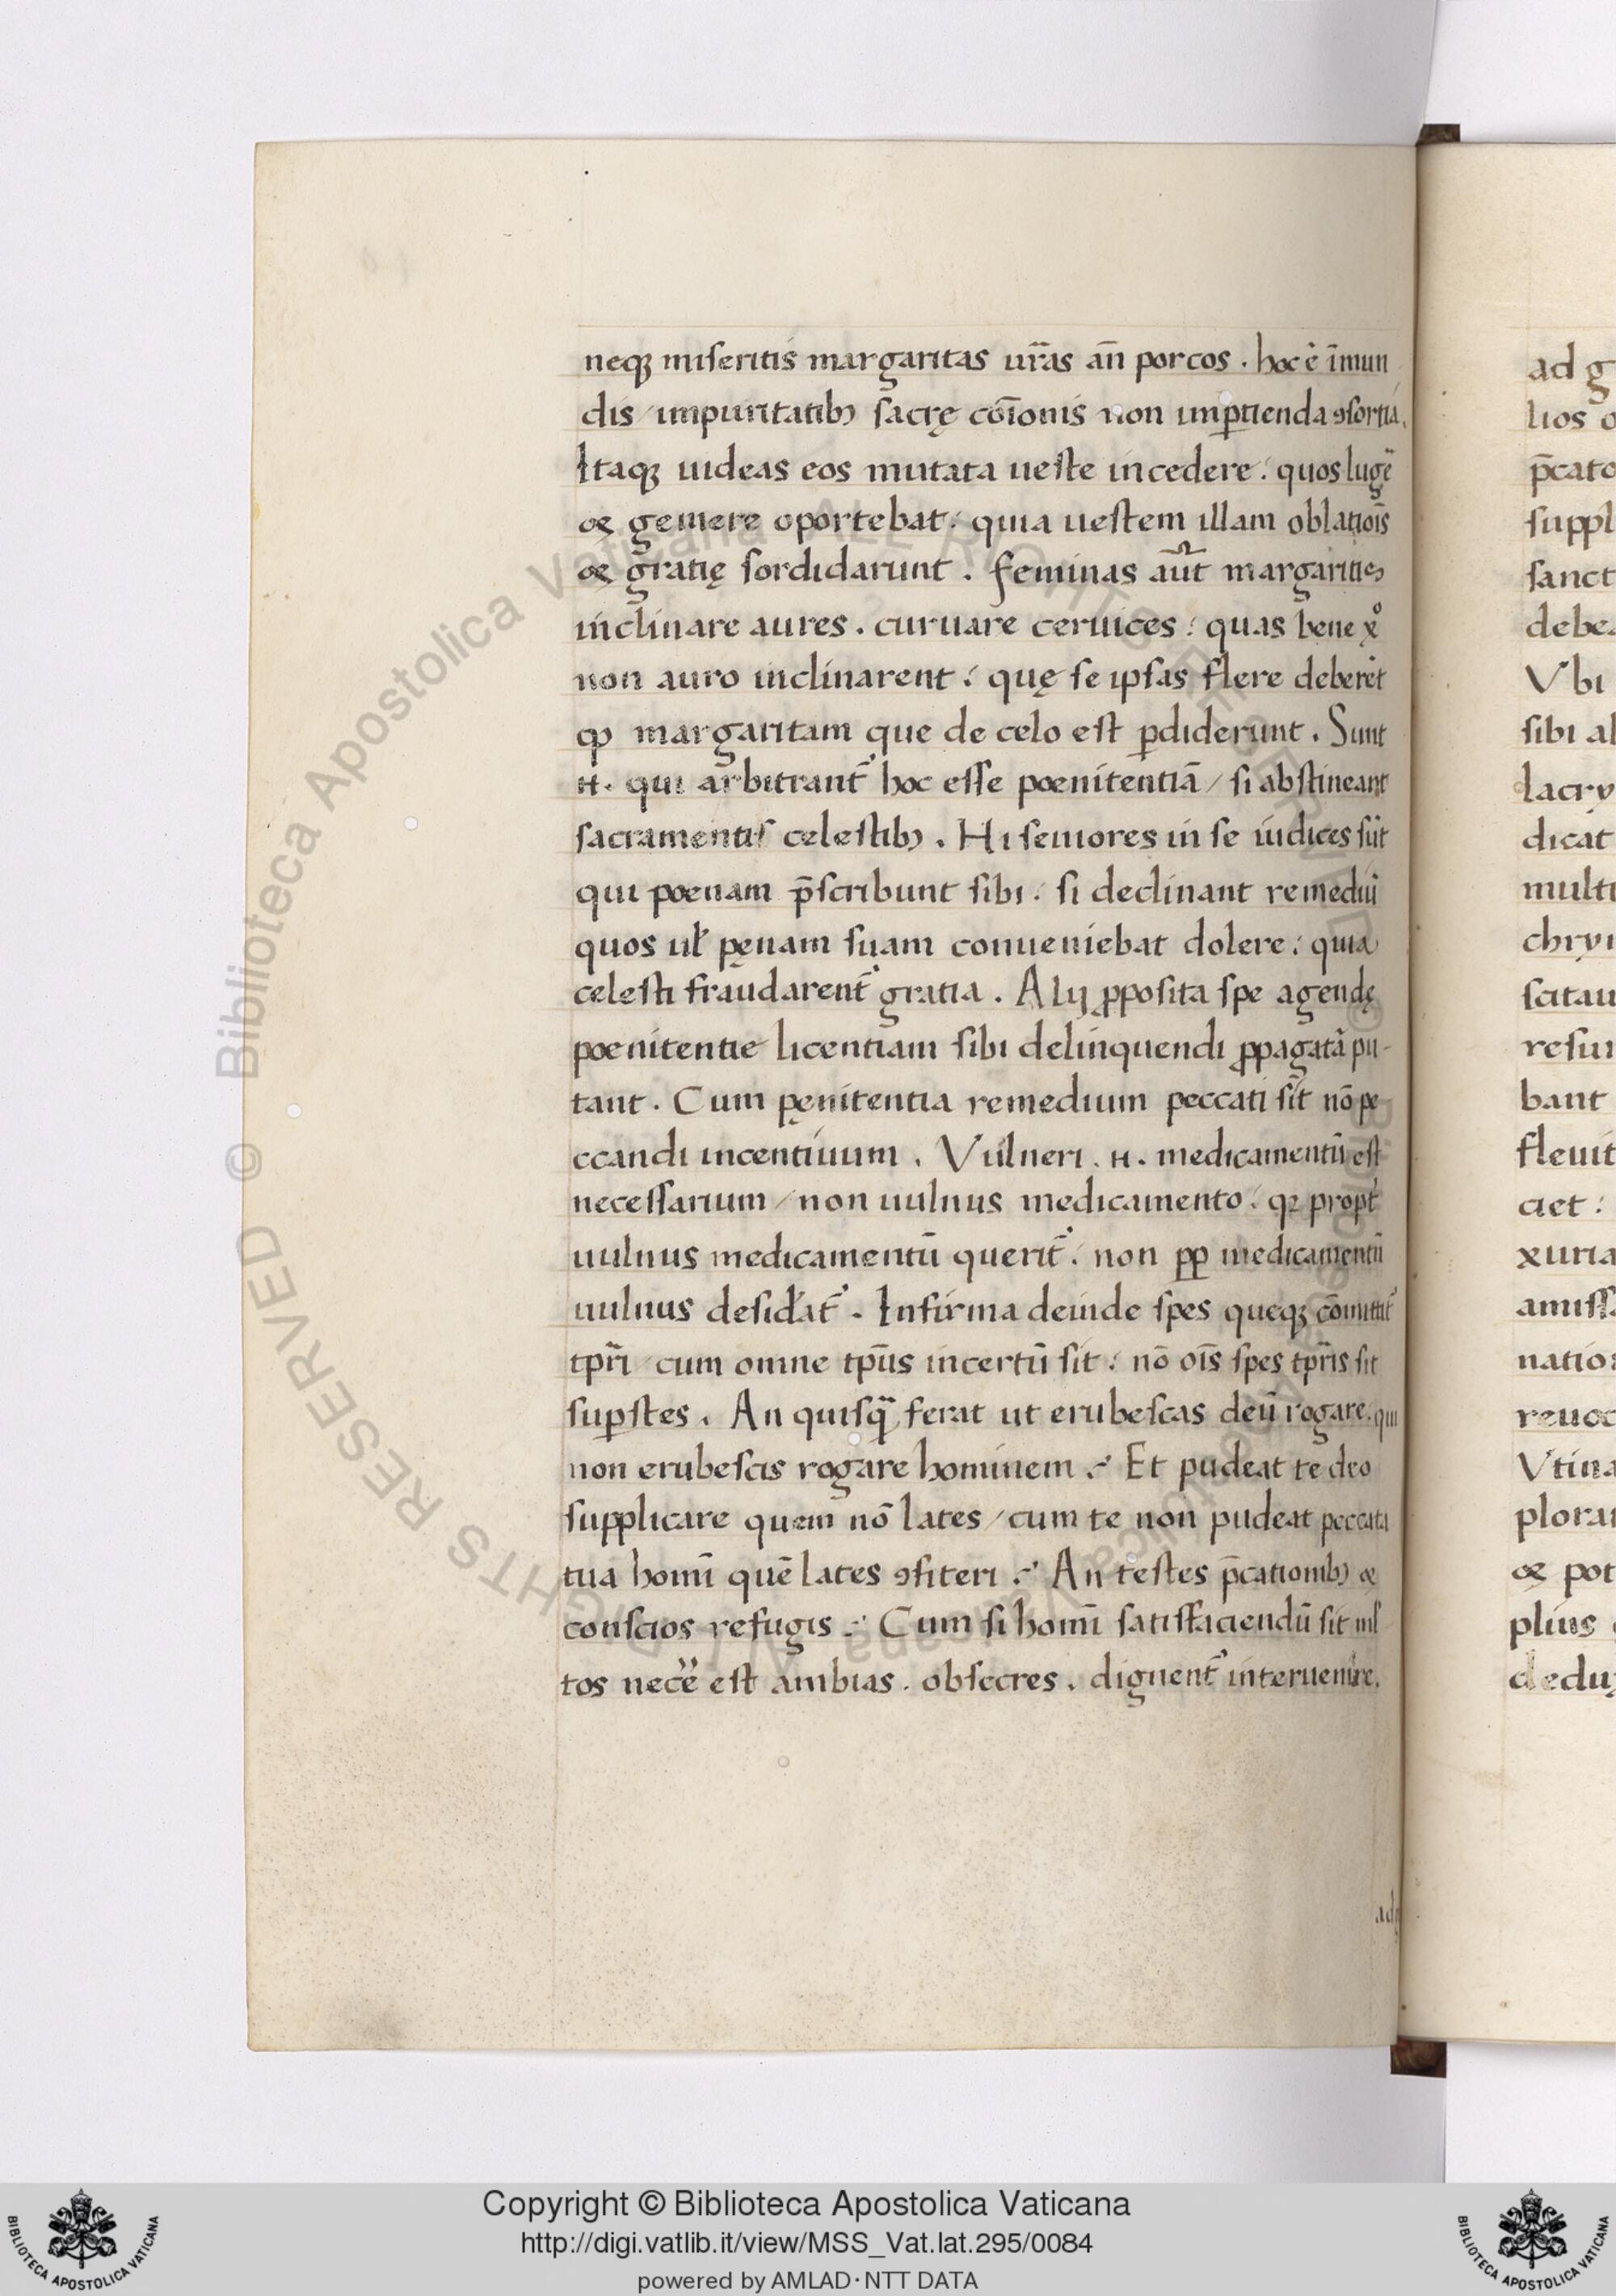 neqꝫ miseritis margaritas ur̄as an̄ porcos . hoc ē īmun
dis / impuritatibꝫ sacrę cōīonis non imꝑtienda ꝯsortia.
Itaqꝫ uideas eos mutata ueste incedere : quos lugē
& gemere oportebat : quia uestem illam oblatiōīs
& gratię sordidarunt . feminas aūt margaritis
inclinare aures . curuare ceruices : quas bene xͦ
non auro inclinarent : quę se ipsas flere deberēt
ꝙ margaritam que de celo est ꝑdiderunt . Sunt
.n. qui arbitrant̄ hoc esse poenitentiā / si abstineant
sacramentis celestibꝫ . Hi seuiores in se iudices sūt
qui poenam p̄scribunt sibi : si declinant remediū
quos ul̄ pęnam suam conueniebat dolere : quia
celesti fraudarent̄ gratia . Alij ꝓposita spe agendę
poenitentie licentiam sibi delinquendi ꝓpagatā pu-
tant . Cum pęnitentia remedium peccati sit nō pe
ccandi incentiuum . Vulneri .n. medicamentū est
necessarium / non uulnus medicamento : qꝛ propt̄
uulnus medicamentū querit̄ : non ꝓꝑ medicamentū
uulnus desid̄at̄ . Infirma deinde spes queqꝫ cōmittit̄
tpr̄i cum omne tp̄us incertū sit : nō oīs spes tpr̄is sit
suꝑstes . An quisq̄ ferat ut erubescas deū rogare . qui
non erubescis rogare hominem ? Et pudeat te deo
supplicare quem nō lates / cum te non pudeat peccata
tua homī quē lates ꝯfiteri ? An testes p̄cationibꝫ &
conscios refugis ? Cum si homī satisfaciendū sit ml̄
tos necēē est ambias . obsecres . dignent̄ interuenire.
ad g
lios
p̄cato
suppl
sanct
debe
Vbi
sibi al
lacry
dicat
multi
chry
scitau
resu
bant
fleuit
ciet :
xuria
amiss
natio
reuoc
Vtina
plora
& pot
plius
dedu
© Biblioteca Apostolica Vaticana ALL RIGHTS RESERVED
© Biblioteca Apostolica Vaticana ALL RIGHTS RESERVED
BIBLIOTECA APOSTOLICA VATICANA
Copyright © Biblioteca Apostolica Vaticana
http://digi.vatlib.it/view/MSS_Vat.lat.295/0084
powered by AMLAD·NTT DATA
BIBLIOTECA APOSTOLICA VATICANA